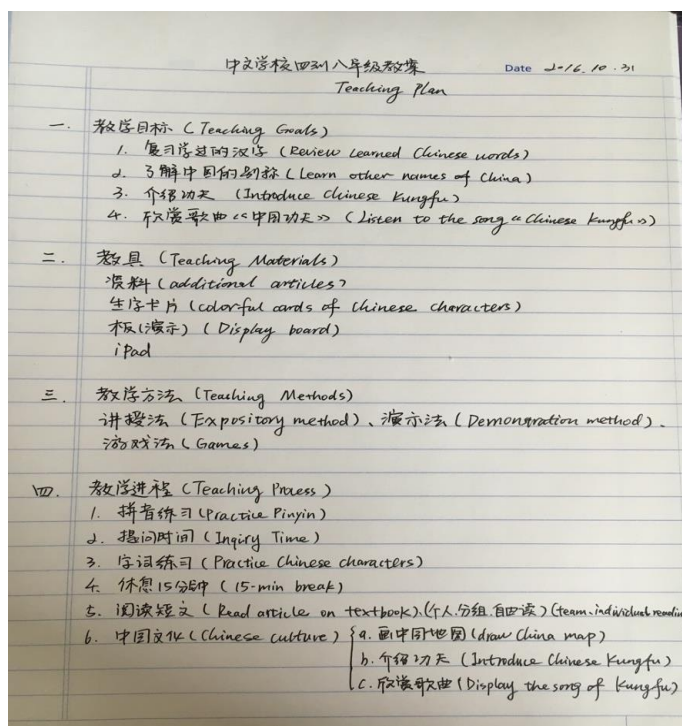 中文学校四到八年级教案 Date 2016.10.31
Teaching Plan
一. 教学目标 (Teaching Goals)
1. 复习学过的汉字 (Review Learned Chinese words)
2. 了解中国的别称 (Learn other names of China)
3. 介绍功夫 (Introduce Chinese Kungfu)
4. 欣赏歌曲《中国功夫》 (Listen to the song "Chinese Kungfu")
二. 教具 (Teaching Materials)
资料 (additional articles)
生字卡片 (colorful cards of Chinese characters)
板(演示) (Display board)
iPad
三. 教学方法 (Teaching Methods)
讲授法 (Expository method)、演示法 (Demonstration method)、
游戏法 (Games)
四. 教学进程 (Teaching Process)
1. 拼音练习 (Practice Pinyin)
2. 提问时间 (Inqiry Time)
3. 字词练习 (Practice Chinese characters)
4. 休息15分钟 (15-min break)
5. 阅读短文 (Read article on textbook).(个人.分组.自由读) (team.individual readin
6. 中国文化 (Chinese culture) { a. 画中国地图 (draw China map)
b. 介绍功夫 (Introduce Chinese Kungfu)
c. 欣赏歌曲 (Display the song of Kungfu)